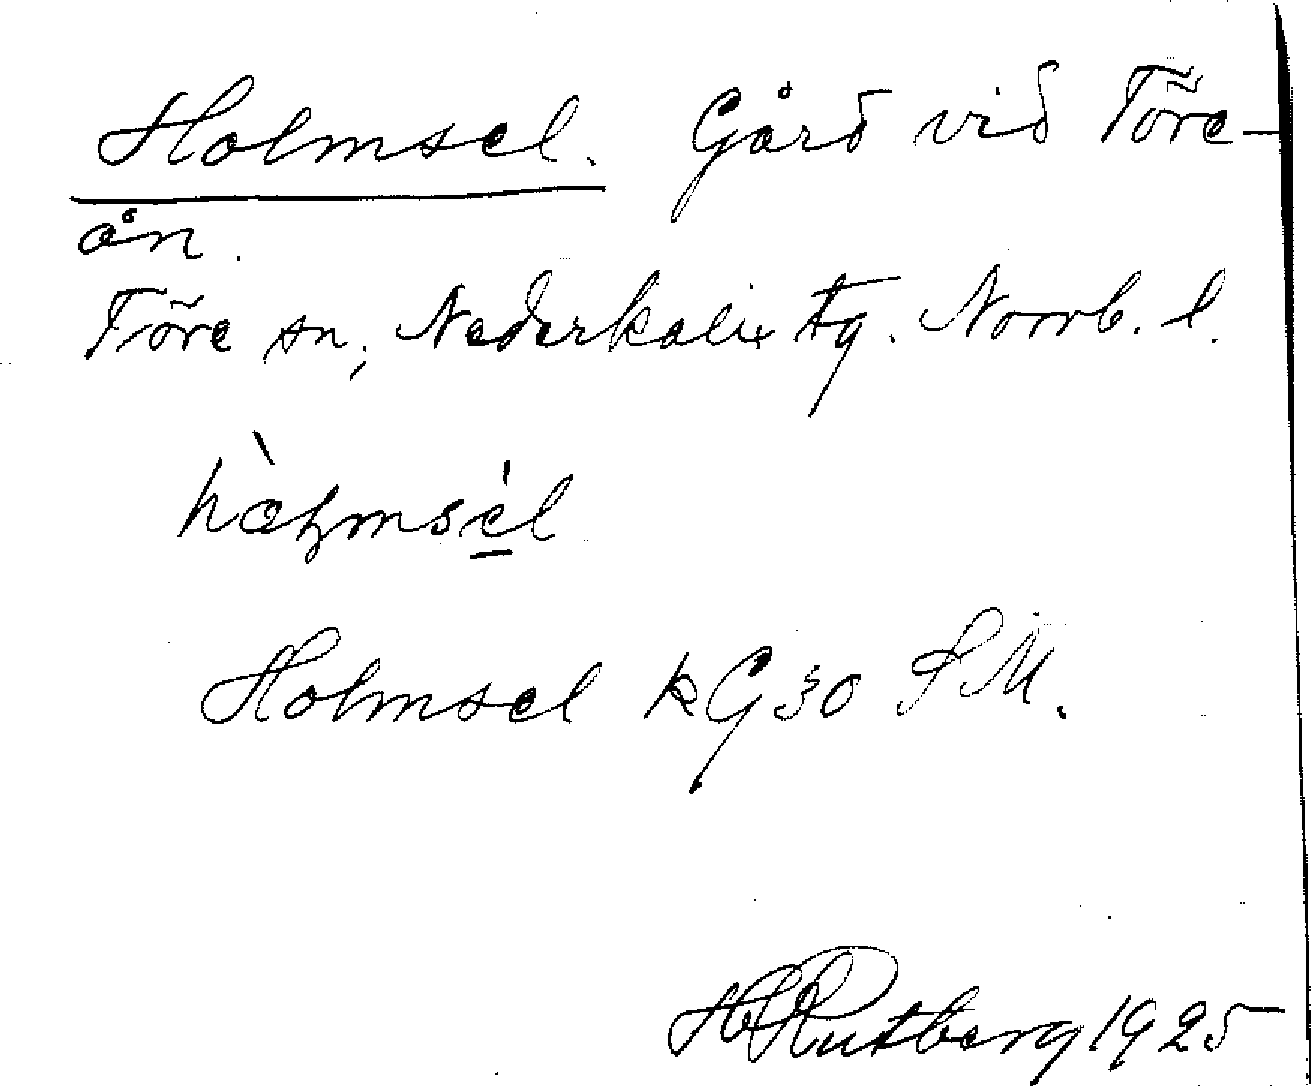 Holmsel. Gård vid Töre-
ån.
Töre sn, Nederkalix tg. Norrb. l.
Holmsel kG30 SM.
Rutberg 1925